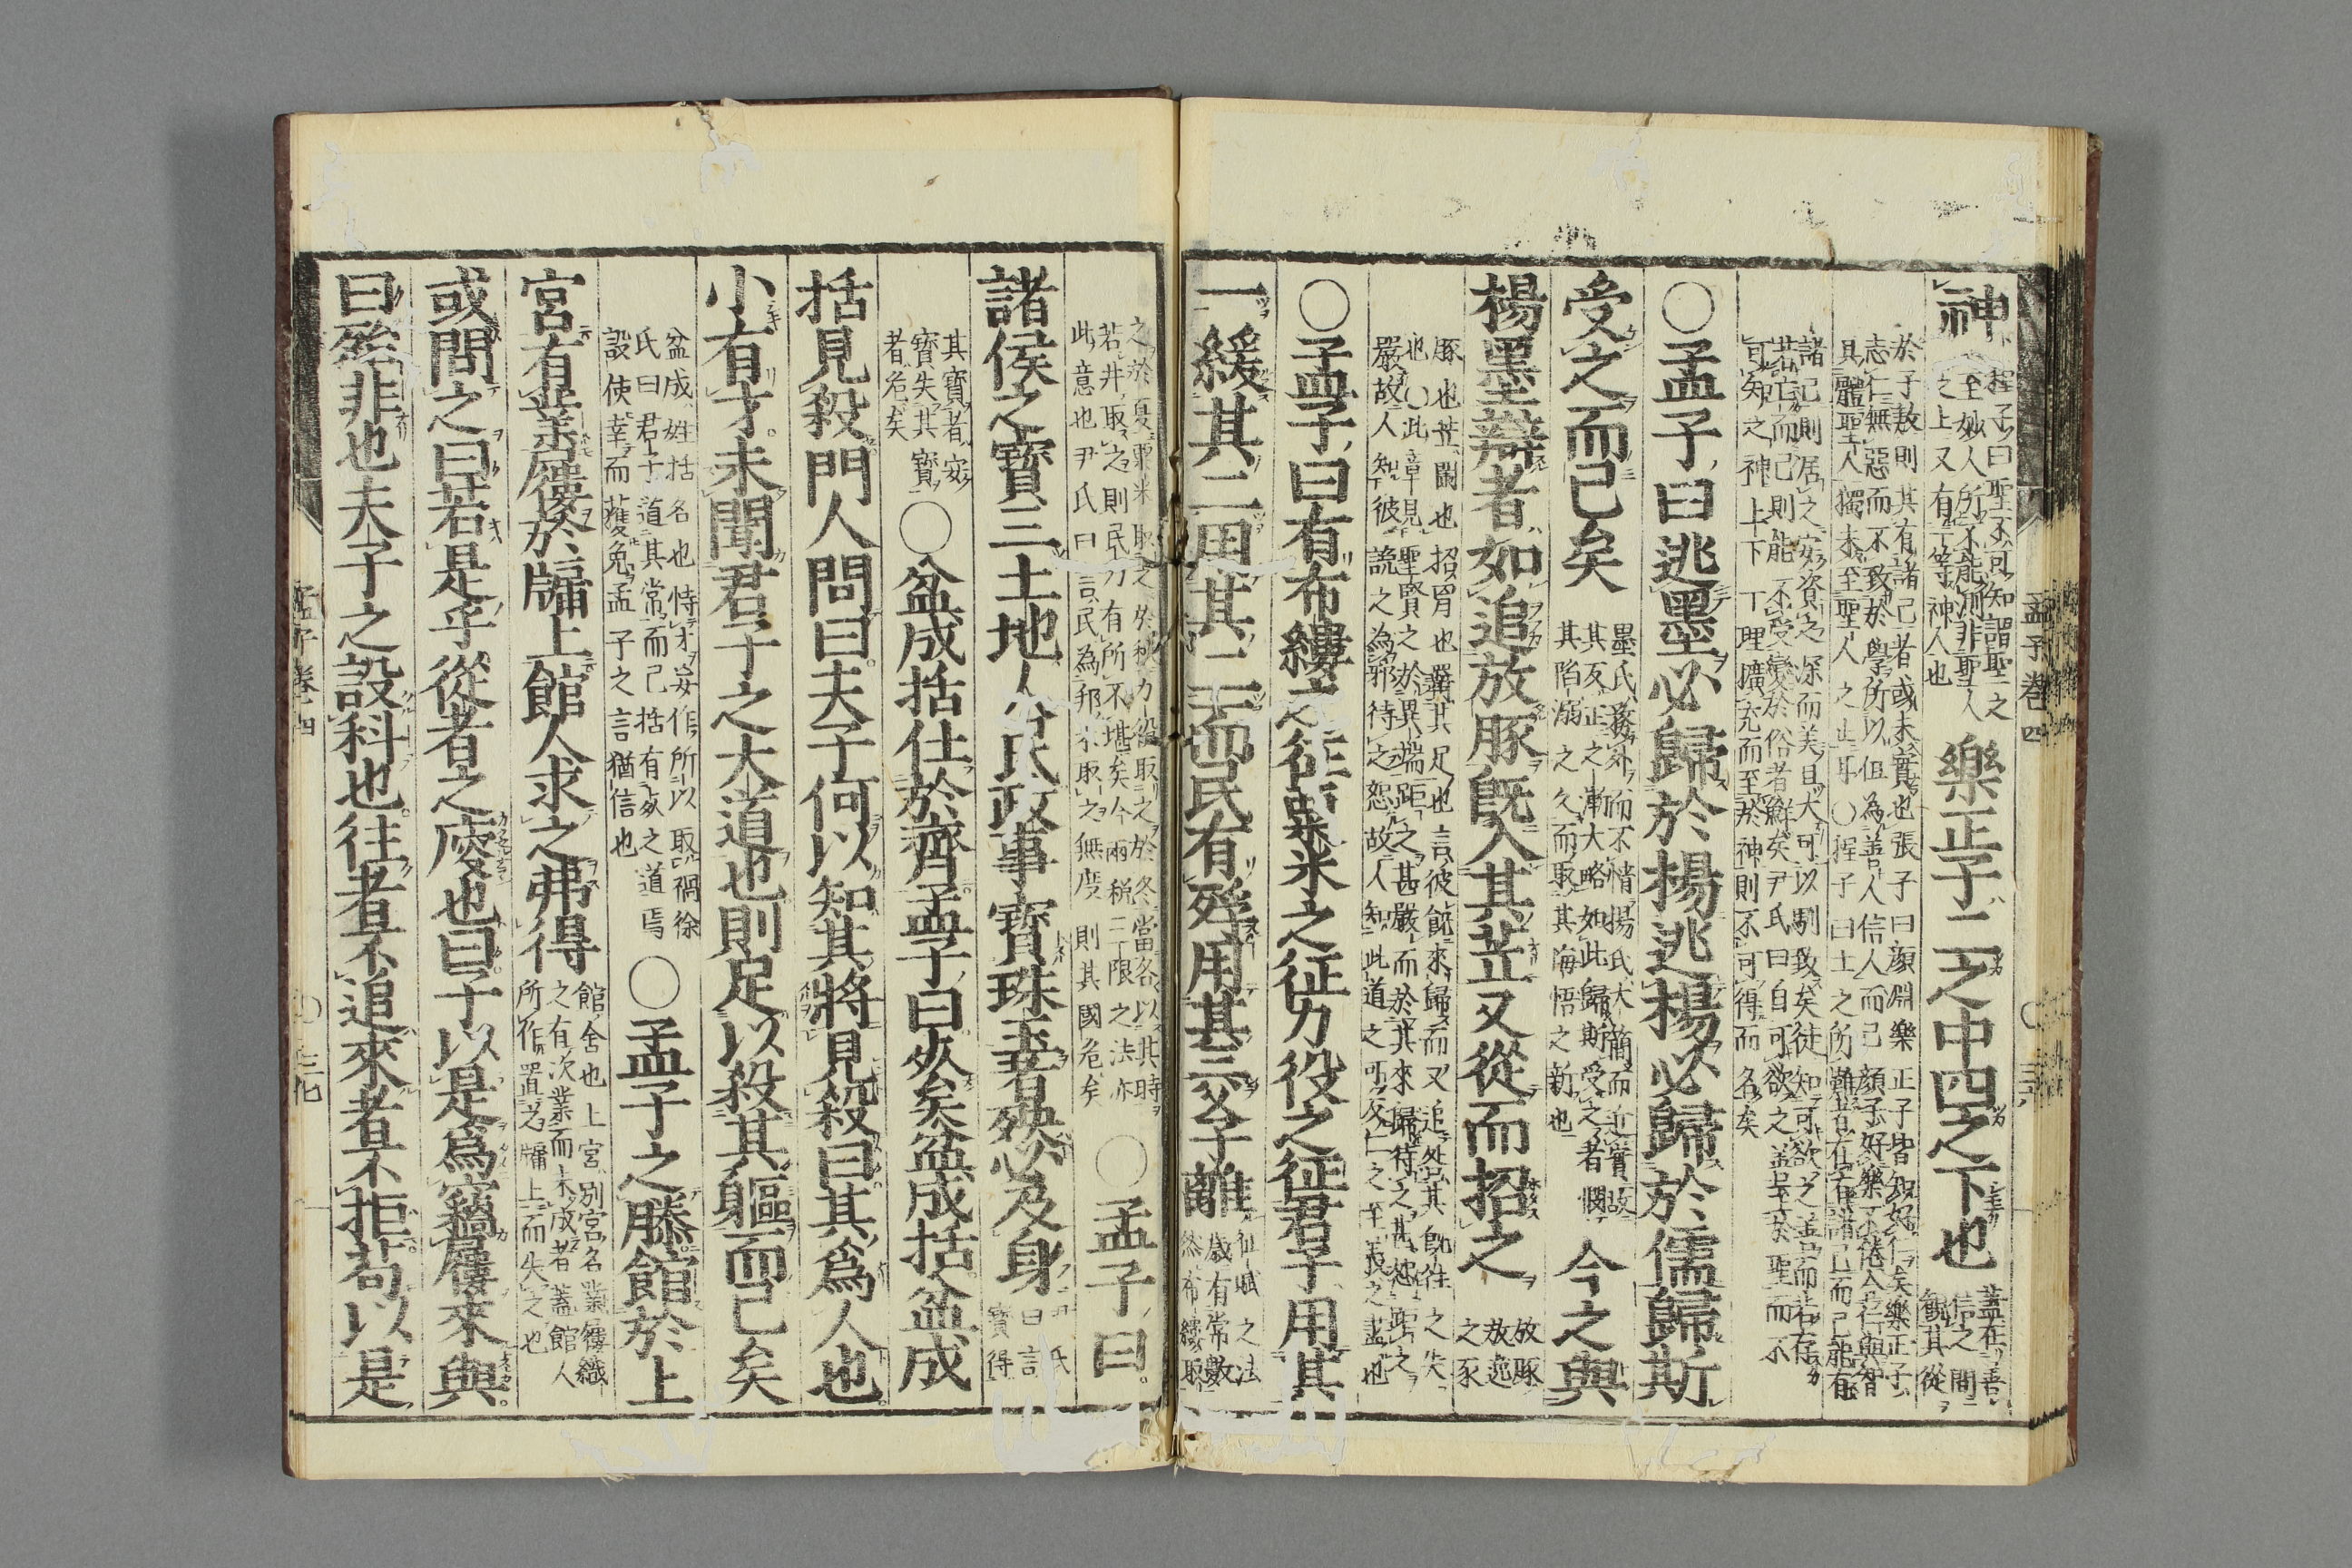 神 程子曰聖不可知謂聖之至妙人所不能測非聖人之上又有一等神人也 樂正子二之中四之下也 蓋在善信之間觀其從
於子敖則其有諸己者或未實也張子曰顏淵樂正子皆知好仁矣樂正子志仁無惡而不致於學所以但為善人信人而已顏子好學不倦合仁與智具體聖人獨未至聖人之止耳○程子曰士之所難者在有諸己而已能有
諸己則居之安資之深而美且大可以馴致矣徒知可欲之善而若存若亡而已則能不受變於俗者鮮矣尹氏曰自可欲之善至於聖而不可知之神上下一理擴充而至於神則不可得而名矣
○孟子曰逃墨必歸於楊逃楊必歸於儒歸斯
受之而已矣 墨氏務外而不情楊氏太簡而近實故其反正之漸大略如此歸斯受之者憫其陷溺之久而取其悔悟之新也 今之與
楊墨辯者如追放豚旣入其苙又從而招之 放豚放逸之豕
豚也苙闌也招罥也羈其足也言彼旣來歸而又追咎其旣往之失也○此章見聖賢之於異端距之甚嚴而於其來歸待之甚恕距之嚴故人知彼說之為邪待之恕故人知此道之可反仁之至義之盡也
○孟子曰有布縷之征粟米之征力役之征君子用其
一緩其二用其二而民有殍用其三而父子離 征賦之法歲有常數然布縷取
之於夏粟米取之於秋力役取之於冬當各以其時若并取之則民力有所不堪矣今兩稅三限之法亦此意也尹氏曰言民為邦本取之無度則其國危矣 ○孟子曰
諸侯之寶三土地人民政事寶珠玉者殃必及身 尹氏曰言寶得
其寶者安寶失其寶者危矣 ○盆成括仕於齊孟子曰死矣盆成括盆成
括見殺門人問曰夫子何以知其將見殺曰其爲人也
小有才未聞君子之大道也則足以殺其軀而已矣
盆成姓括名也恃才妄作所以取禍徐氏曰君子道其常而已括有死之道焉設使幸而獲免孟子之言猶信也 ○孟子之滕館於上
宮有業屨於牖上館人求之弗得 館舍也上宮別宮名業屨織之有次業而未成者蓋館人所作置之牖上而失之也
或問之曰若是乎從者之廋也曰子以是爲竊屨來與
曰殆非也夫子之設科也往者不追來者不拒苟以是
孟子卷四
孟子卷四